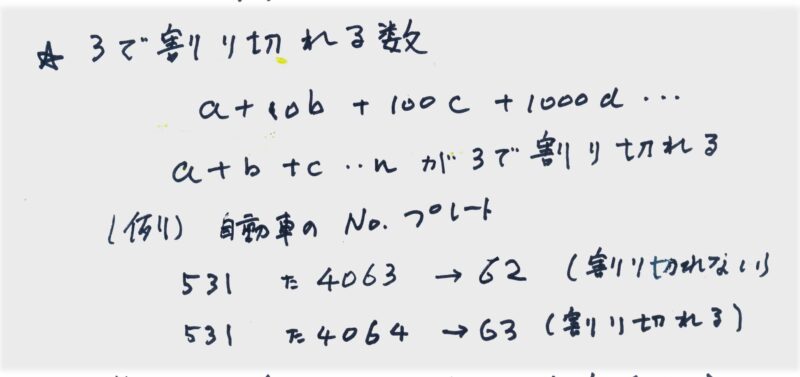 ☆ 3で割り切れる数
a+10b + 100c + 1000d ...
a+b+c..n が3で割り切れる
(例) 自動車の No. プレート
531 た 4063 → 62 (割り切れない)
531 た 4064 → 63 (割り切れる)